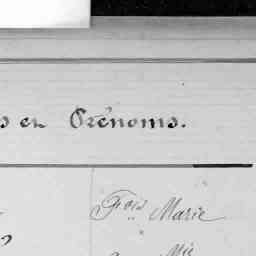 s en Prénoms.
Fois Marie
Mie